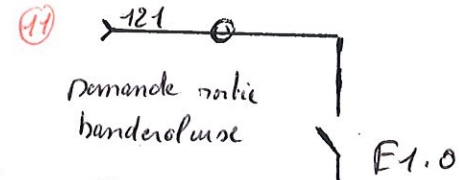 11
121
Demande sortie
banderoleuse
E1.0